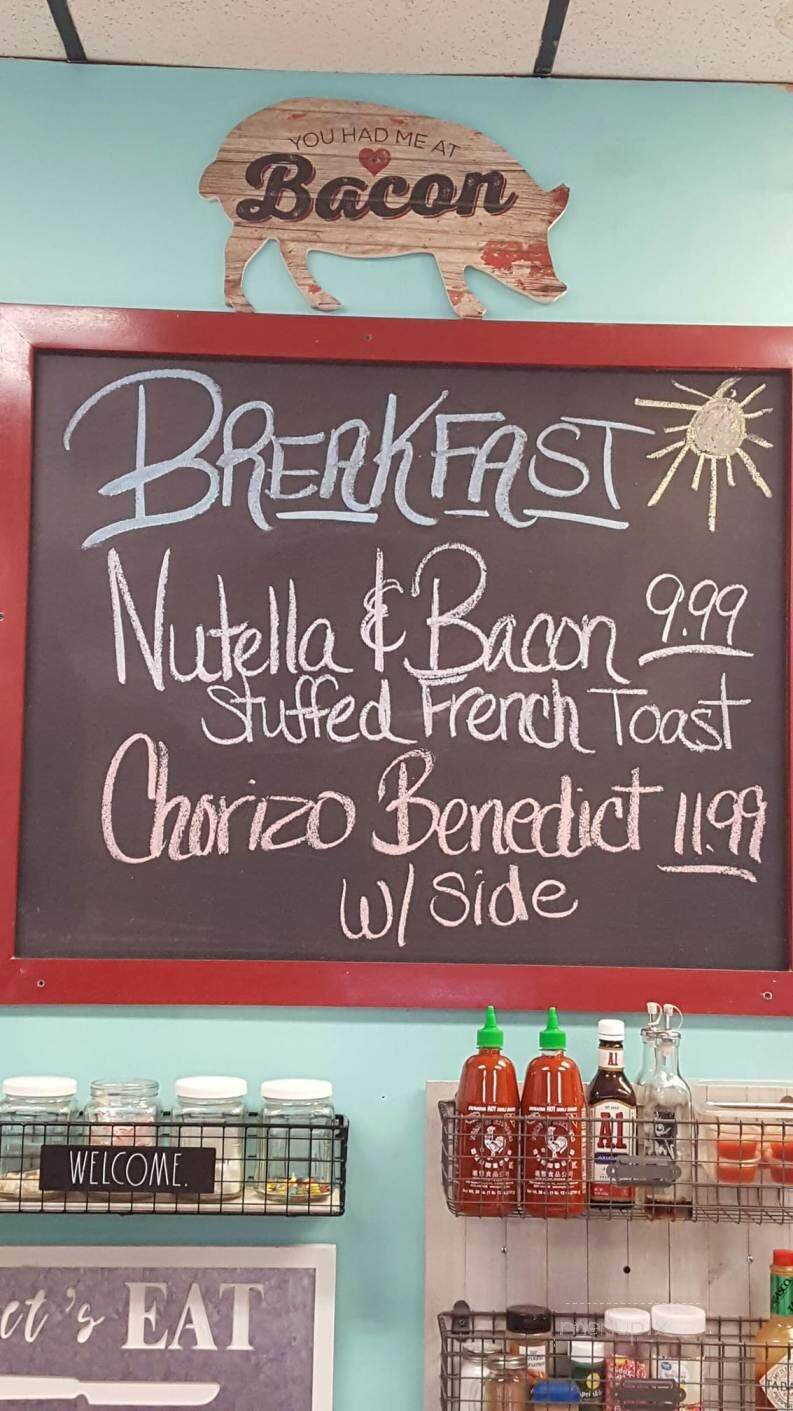 YOU HAD ME AT
Bacon
BREAKFAST
Nutella & Bacon 9.99
Stuffed French Toast
Chorizo Benedict 11.99
w/ Side
A1
A1
WELCOME.
et's EAT